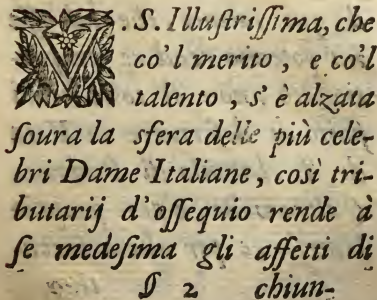 V. S. Illuſtriſſima, che
co'l merito, e co'l
talento, s'è alzata
ſoura la sfera delle più cele-
bri Dame Italiane, così tri-
butarij d'oſſequio rende à
ſe medeſima gli affetti di
2 chiun-